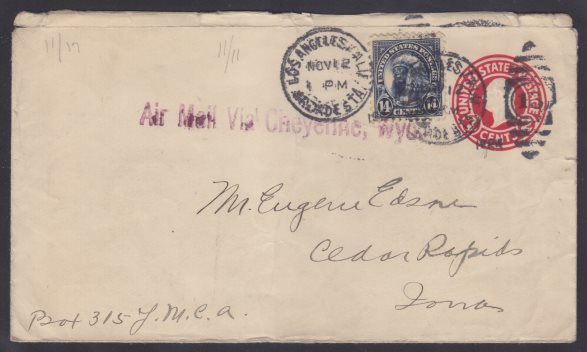 11/17
11/11
LOS ANGELES, CALIF.
NOV 12
1 PM
ARCADE STA.
UNITED STATES POSTAGE
14 CENTS 14
UNITED STATES POSTAGE
CENTS
Air Mail Via Cheyenne, Wyo.
Mr. Eugene
Cedar Rapids
Iowa
Box 315 Y.M.C.A.